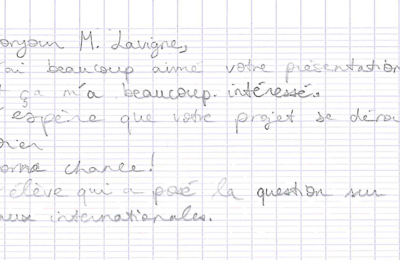 onjour M. Lavigne,
'ai beaucoup aimé votre présentation
ça m'a beaucoup intéressé.
'espère que votre projet se dérou
bien
onne chance!
élève qui a posé la question sur
eux internationales.